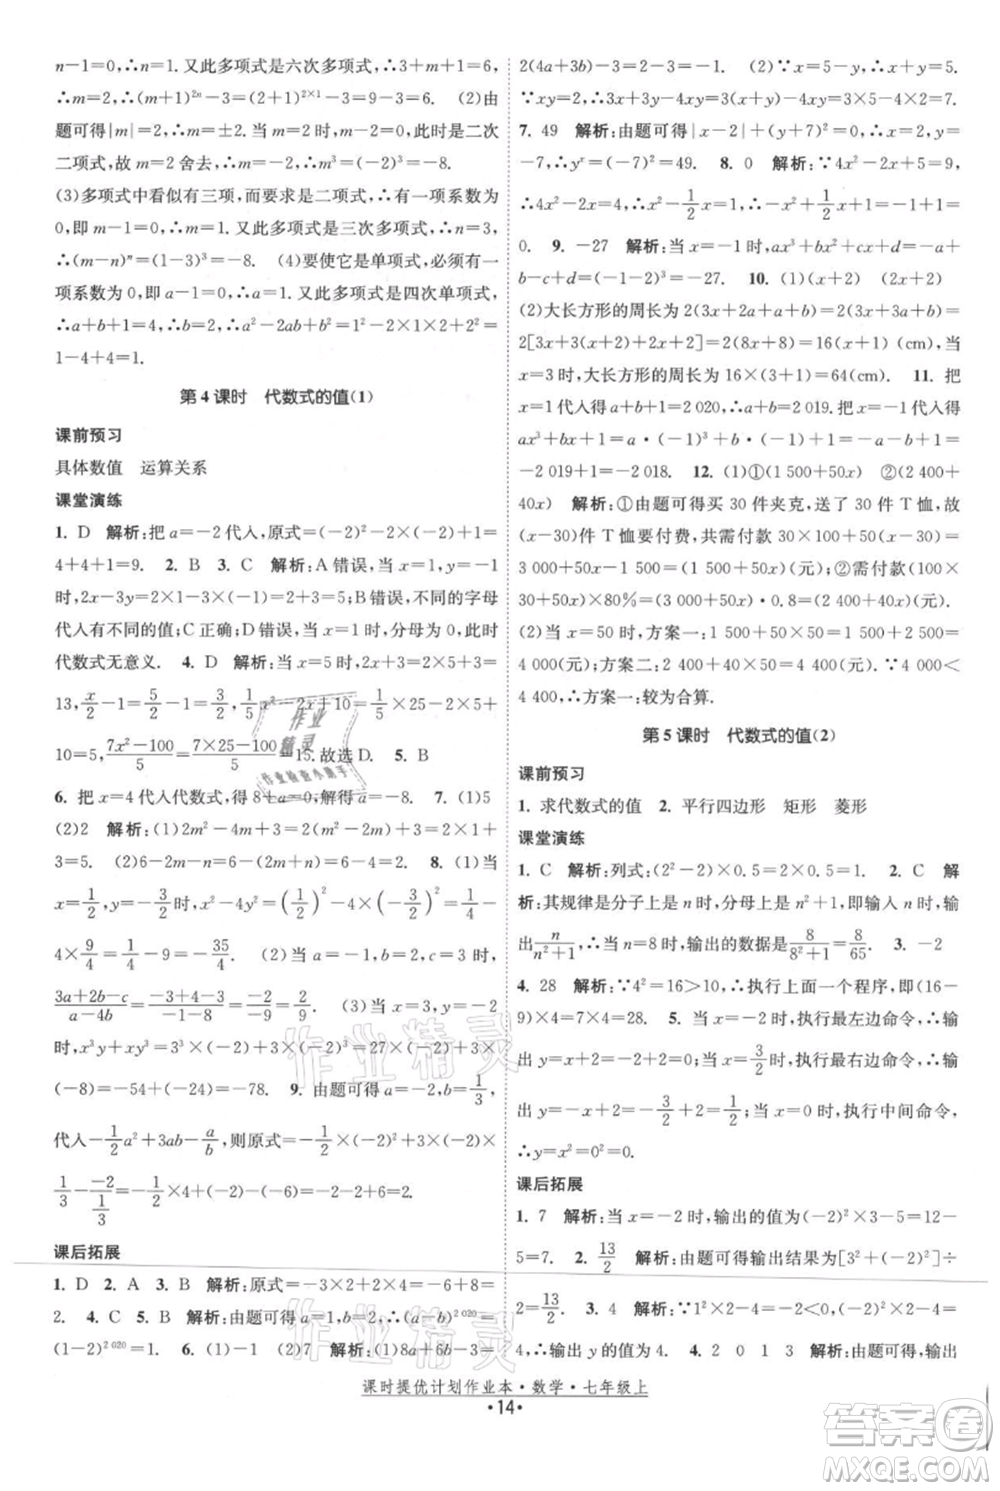 n-1=0,∴n=1. 又此多项式是六次多项式,∴3+m+1=6,
∴m=2,∴(m+1)²ⁿ-3=(2+1)^{2×1}-3=9-3=6. (2)由
题可得|m|=2,∴m=±2. 当 m=2 时,此多项式是二次
二项式,故 m=2 舍去,∴m=-2,∴m³=(-2)³=-8.
(3)多项式中看似有三项,而要求是二项式,∴有一项系数为
0,即 n-1=0,∴n=1. 又此多项式是三次多项式,∴m=
0,∴(m-n)ⁿ=(1-3)³=-8. (4)要使它是单项式,必有一
项系数为 0,即 a-1=0,∴a=1. 又此多项式是四次单项式,
∴a+b+1=4,∴b=2,∴a²-2ab+b²=1²-2×1×2+2²=
1-4+4=1.
第 4 课时 代数式的值(1)
课前预习
具体数值 运算关系
课堂演练
1. D 解析:把 a=-2 代入,原式=(-2)²-2×(-2)+1=
4+4+1=9. 2. B 3. C 解析:A 错误,当 x=-1,y=-3
时,2x-3y=2×1-3×(-3)=7;B 错误,不同的字母
代入有不同的值;C 正确;D 错误,当 x=1 时,分母为 0,此时
代数式无意义. 4. D 解析:当 x=5 时,2x+3=2×5+3=
13,x/2-2=5/2-2=1/2,x²-2x+10=5²-2×5+
10=5,(7x²-100)/5=(7×25-100)/5=15. 故选 D. 5. B
6. 把 x=4 代入代数式,得 8+a=0,解得 a=-8. 7. (1)5
(2)2 解析:(1)2m²-4m+3=2(m²-2m)+3=2×1
+3=5. (2)6-2m-n=6-(2m+n)=6-4=2. 8. (1)当
x=1/2,y=-3/2时,x²-4y²=(1/2)²-4×(-3/2)²=1/4-
4×9/4=1/4-9=-35/4. (2)当 a=-1,b=2,c=3 时,
(3a+2b-c)/(a-4b)=(-3+4-3)/(-1-8)=-2/-9=2/9. (3)当 x=3,y=-2
时,x³y+xy³=3³×(-2)+3×(-2)³=27×(-2)+3×
(-8)=-54+(-24)=-78. 9. 由题可得 a=-2,b=1/3,
代入-1/2a²+3ab-a/b,则原式=-1/2×(-2)²+3×(-2)×
1/3-(-2)/(1/3)=-1/2×4+(-2)-(-6)=-2-2+6=2.
课后拓展
1. D 2. A 3. B 解析:原式=-3×2+2×4=-6+8=
2. 4. C 5. B 解析:由题可得 a=1,b=2,∴(a-b)^{2 020}=
(1-2)^{2 020}=1. 6. (1)-2 (2)7 解析:(1)8a-6b=
2(4a+3b)-3=2-3=-1. (2)∵x=5-y,∴x+y=5.
∵xy=2,∴3x+3y-4xy=3(x+y)-4xy=3×5-4×2=7.
7. 49 解析:由题可得|x-2|+(y+7)²=0,∴x=2,y=
-7,∴yˣ=(-7)²=49. 8. 0 解析:∵4x²-2x+5=9,
∴4x²-2x=4,∴2x²-x=2,∴1/2x-x²+1=-1+1=
0. 9. -27 解析:当 x=-1时,ax³+bx²+cx+d=-a+
b-c+d=(-3)³=-27. 10. (1)(x+3) (2x+a)
(2)大长方形的周长为 2(3x+2a+a+2x+3)=
2[3x+3+2(x+3)+2x+2]=2(7x+8+x)=16(x+1)(cm),∴当
x=3 时,大长方形的周长为 16×(3+1)=64(cm). 11. 把
x=1 代入得 a+b+1=2 020,∴a+b=2 019. 把 x=-1 代入得
ax³+bx+1=a·(-1)³+b·(-1)+1=-a-b+1=
-2 019+1=-2 018. 12. (1)(1 500+50x) (2 400+
40x) 解析:①由题可得买 30 件夹克,赠送 30 件 T 恤,故
(x-30)件 T 恤需付款,∴共需付款 30×100+50(x-30)=
3 000+50x-1 500=(1 500+50x)(元);②需付款(100×
30+50x)×80%=(3 000+50x)·0.8=(2 400+40x)(元).
(2)当 x=50 时,方案一:1 500+50x=1 500+50×50=
4 000(元);方案二:2 400+40×50=4 400(元).∵4 000<
4 400,∴方案一较为合算.
第 5 课时 代数式的值(2)
课前预习
1. 求代数式的值 2. 平行四边形 矩形 菱形
课堂演练
1. C 解析:列式:(2²-2)×0.5=2×0.5=1. 2. C 解
析:其规律是分子上是 n 时,分母上是 n²+1,即输入 n 时,输
出n/(n²+1),∴当 n=8 时,输出的数据是8/(8²+1)=8/65. 3. -2
4. 28 解析:∵4²=16>10,∴执行上面一个程序,即(16-
9)×4=7×4=28. 5. 当 x=-2 时,执行最左边命令,∴输
出 y=x+2=-2+2=0;当 x=3/2时,执行最右边命令,∴输
出 y=-x+2=-3/2+2=1/2;当 x=0 时,执行中间命令,
∴y=x²=0²=0.
课后拓展
1. 7 解析:当 x=-2 时,输出的值为(-2)²×3-5=12-
5=7. 2. 13/2 解析:由题可得输出结果为[3²+(-2)²]÷
2=13/2. 3. 4 解析:∵1²×2-4=2-4=-2<0,∴(-2)²×
2-4=4,∴输出 y 的值为 4. 4. 2 0 1 3 解析:∵由
课时提优计划作业本·数学·七年级上
·14·
作业精灵
作业检查小助手
作业精灵
作业精灵
答案圈
MXQE.COM